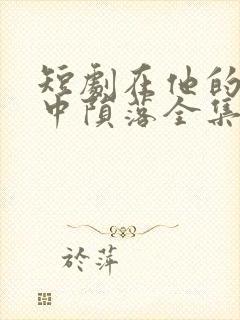 短劇在他的
中隕落全集
於萍